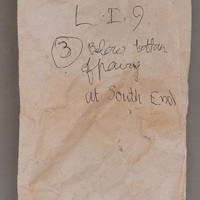 L.I.9.
③ Below bottom
of paving
at South End